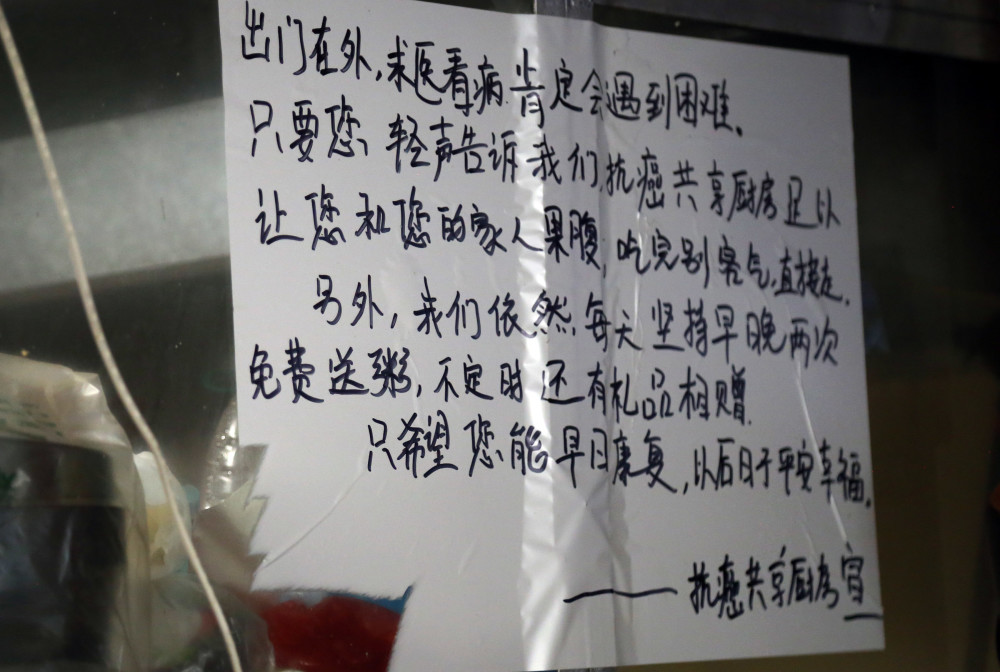 出门在外,求医看病肯定会遇到困难.
只要您轻声告诉我们,抗癌共享厨房足以
让您和您的家人果腹,吃完别客气,直接走.
另外,我们依然每天坚持早晚两次
免费送粥,不定时还有礼品相赠.
只希望您能早日康复,以后日子平安幸福.
——抗癌共享厨房宣